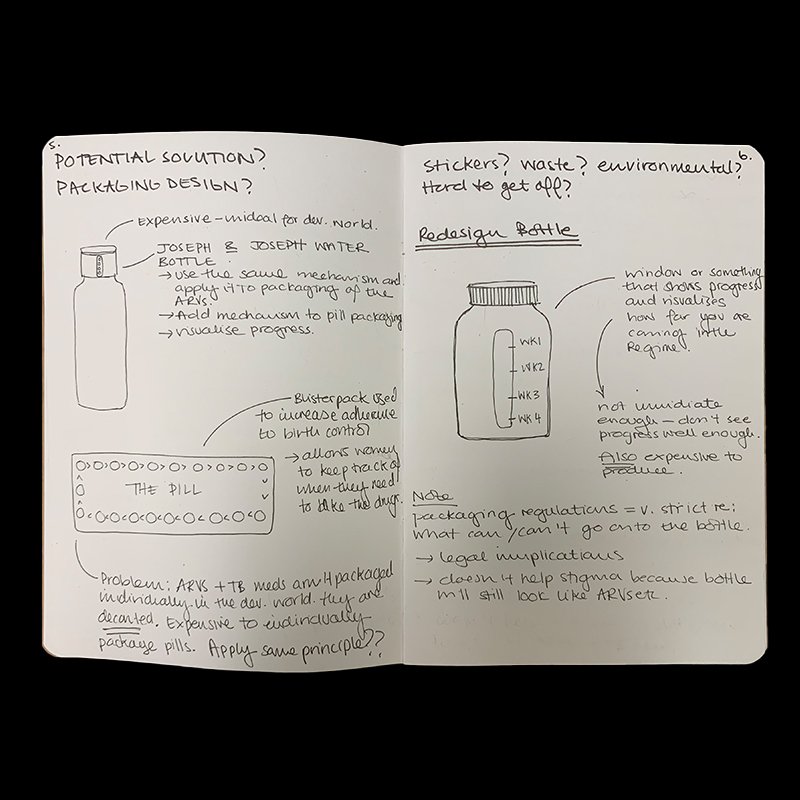 5.
POTENTIAL SOLUTION?
PACKAGING DESIGN?
EXPENSIVE - for dev. world.
JOSEPH & JOSEPH WATER
BOTTLE.
→ use the same mechanism and
apply it to packaging of the
ARVs.
→ Add mechanism to pill packaging
→ visualise progress.
Blisterpack used
to increase adherence
to birth control
→ allows women
to keep track of
when they need
to take the drugs.
THE PILL
Problem: ARVs + TB meds packaged
individually in the dev. world. They are
decanted. Expensive to individually
package pills. Apply same principle??
6.
Stickers? waste? environmental?
Hard to get off?
Redesign Bottle
window or something
that shows progress
and visualises
how far you are
coming in the
Regime.
WK1
WK2
WK3
WK4
not immidiate
enough - don't see
progress well enough.
Also expensive to
produce.
Note
packaging regulations = v. strict re:
what can/can't go onto the bottle.
→ legal implications
→ doesn't help stigma because bottle
will still look like ARVs etc.